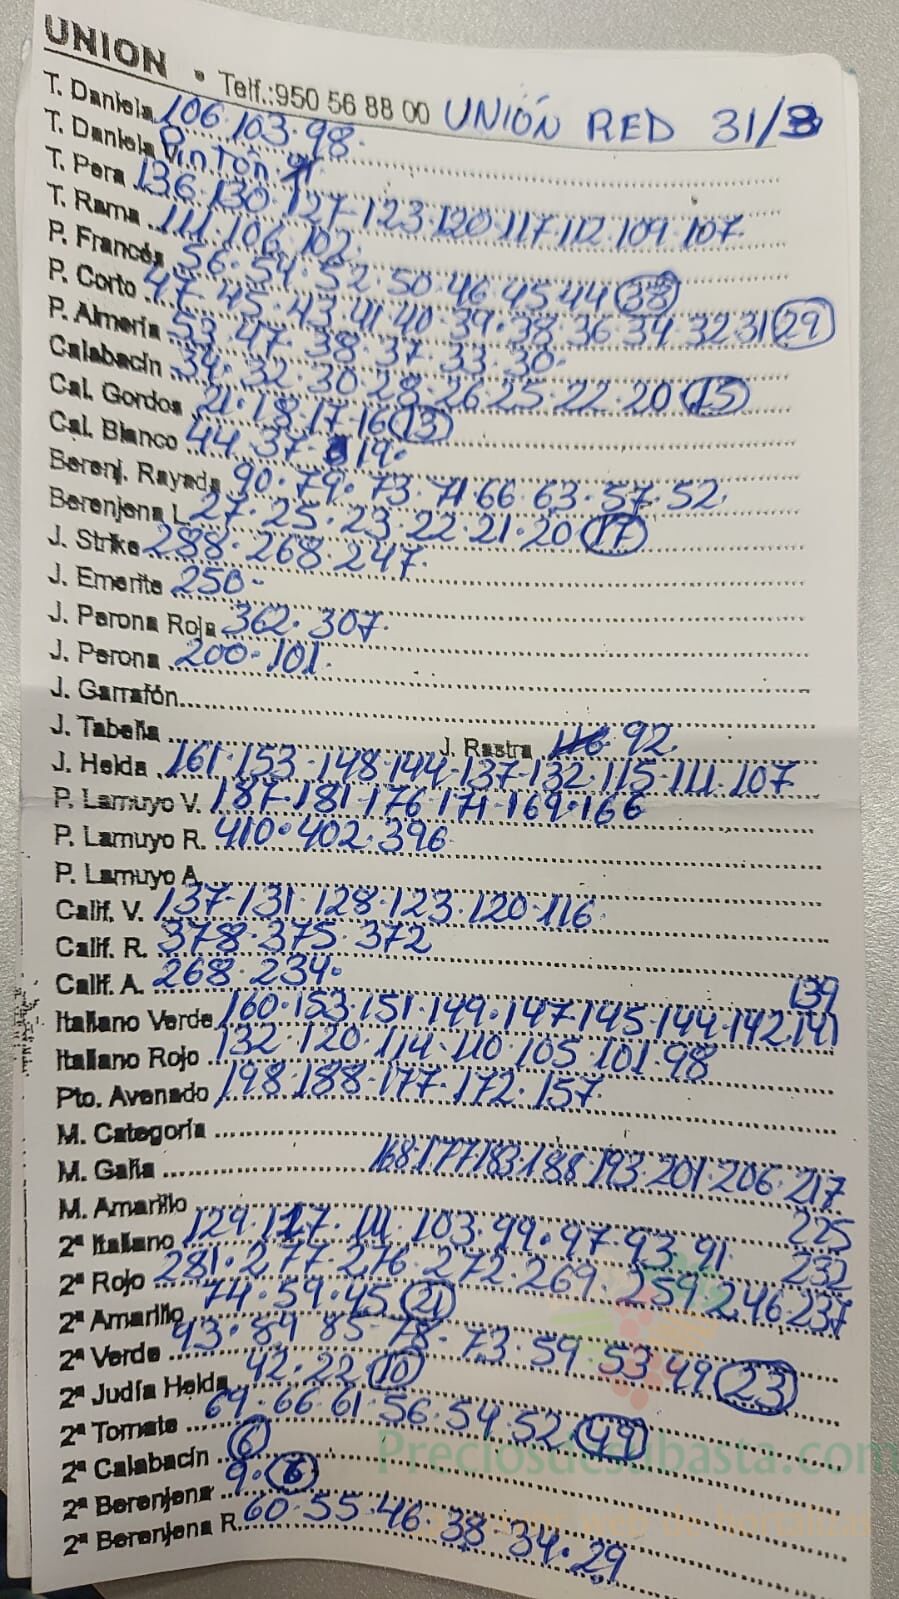 UNION • Telf.:950 56 88 00 UNIÓN RED 31/3
T. Daniela 106.103.98.
T. Daniela Pintón
T. Pera 136.130.127-123.120.117.112.109.107.
T. Rama 111.106.102.
P. Francés 56.54.52 50.46.45 44 38
P. Corto 47.45.43.41.40.39.38.36.34.32.31 29
P. Almería 53.47.38.37.33.30.
Calabacín 34.32.30.28.26.25.22.20 15
Cal. Gordos 21.18.17.16 13
Cal. Blanco 44.37. 19.
Berenj. Rayada 90.79.73.71 66.63.57.52.
Berenjena L. 27.25.23.22.21.20 17
J. Strike 288.268.247.
J. Emerite 250-
J. Perona Roja 362.307.
J. Perona 200.101.
J. Garrafón
J. Tabella J. Rastra 116 92.
J. Helda 161.153-148-144-137-132.115-111.107
P. Lamuyo V. 187.181-176.171-169.166
P. Lamuyo R. 410.402.396.
P. Lamuyo A.
Calif. V. 137-131-128-123.120-116.
Calif. R. 378.375.372
Calif. A. 268.234.
139
Italiano Verde 160.153.151.149.147.145.144.142.141
Italiano Rojo 132.120.114-110.105.101.98
Pto. Avenado 198.188-177.172.157.
M. Categoría
M. Galia 168.177.183.188.193.201.206.217
M. Amarillo 225
2ª Italiano 129.117.111.103.99.97.93.91. 232
2ª Rojo 281.277.276.272.269.259.246.237
2ª Amarillo 74.59.45 21
2ª Verde 93.89 85-78.73.59.53.49 23
2ª Judía Helda 42.22 10
2ª Tomate 69.66.61.56.54.52 49
2ª Calabacín 6
2ª Berenjena 9. 6
2ª Berenjena R. 60.55.46.38.34.29
Preciosdesubasta.com
web de hortalizas